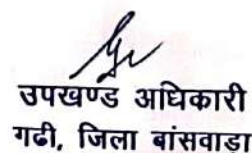 उपखण्ड अधिकारी
गढी, जिला बांसवाडा